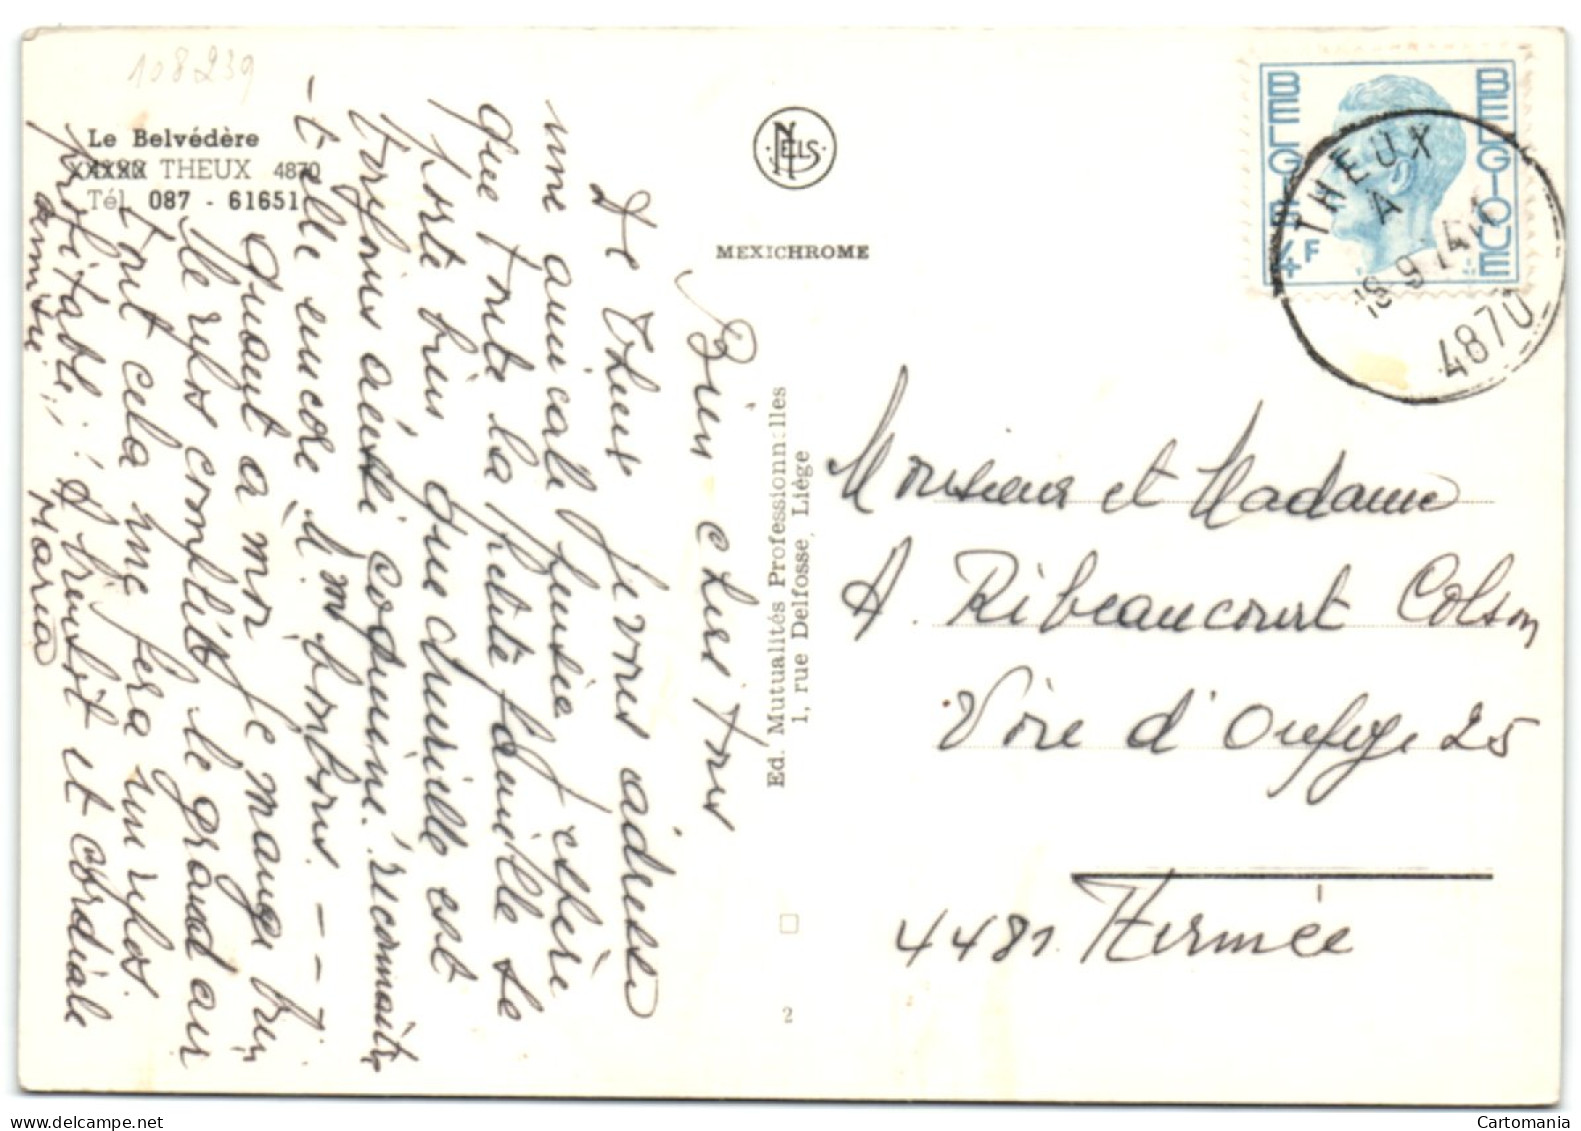 108239
Le Belvédère
XXXXX THEUX 4870
Tél. 087 - 61651
NELS
MEXICHROME
Ed. Mutualités Professionnelles
1, rue Delfosse, Liège
2
BELGIE BELGIQUE
4F
THEUX
A
18 9
4870
Bien chers tous
De Theux je vous adresse
une amicale pensée espère
que toute la petite famille se
porte bien, que Murielle est
toujours aussi coquine. reconnaîtra
-t-elle encore "l'm bonbons - - - ?
Quant à moi je mange bien
le repos complet, le grand air
tout cela me fera un repos
profitable; à bientôt et cordiale
amitié,
Maria
Monsieur et Madame
A. Ribeaucourt Colson
Voie d'Oufeye 25
4481 Hermée
Cartomania